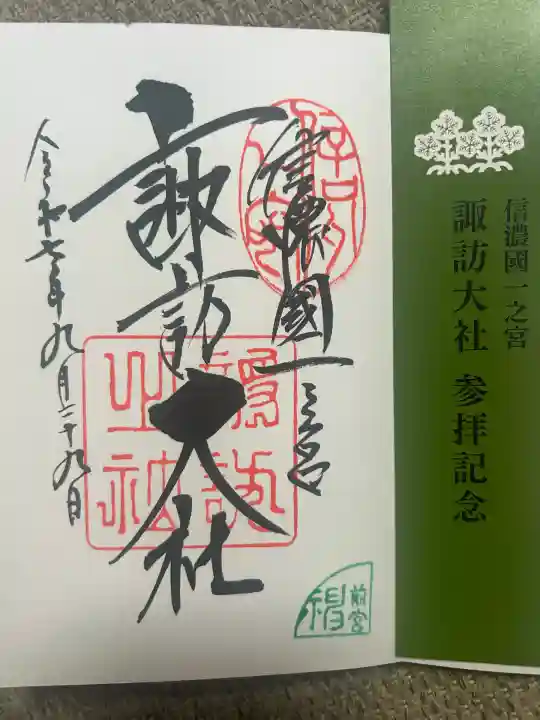 信濃國一之宮
諏訪大社 参拝記念
信濃國一之宮
諏訪大社
令和七年九月二十九日
諏訪
之神
前宮